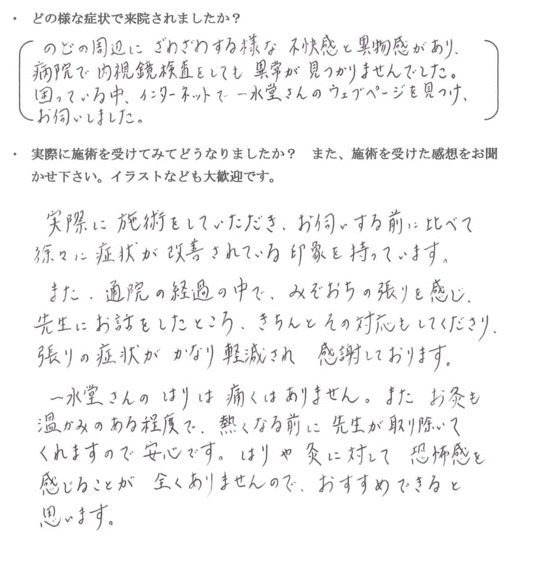 ・ どの様な症状で来院されましたか？
のどの周辺に ざわざわする様な 不快感と異物感があり、
病院で内視鏡検査をしても 異常が見つかりませんでした。
困っている中、インターネットで一水堂さんのウェブページを見つけ、
お伺いしました。
・ 実際に施術を受けてみてどうなりましたか？ また、施術を受けた感想をお聞
かせ下さい。イラストなども大歓迎です。
実際に施術をしていただき、お伺いする前に比べて
徐々に症状が改善されている印象を持っています。
また、通院の経過の中で、みぞおちの張りを感じ、
先生にお話をしたところ、きちんとその対応もしてくださり、
張りの症状が かなり軽減され 感謝しております。
一水堂さんの はりは 痛くはありません。また お灸も
温かみのある程度で、熱くなる前に先生が取り除いて
くれますので安心です。はりや灸に対して 恐怖感を
感じることが 全くありませんので、おすすめできると
思います。